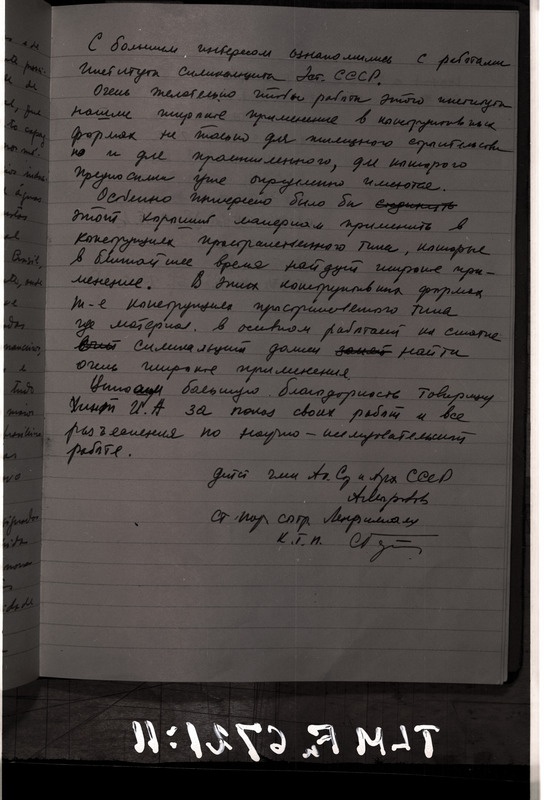 С большим интересом ознакомились с работами
Института силикальцита Эст. СССР.
Очень желательно чтобы работы этого института
нашли широкое применение в конструктивных
формах не только для жилищного строительства
но и для промышленного, для которого
предпосылки уже определенно имеются.
Особенно интересно было бы
этот хороший материал применить в
конструкциях пространственного типа, которые
в ближайшее время найдут широкое при-
менение. В этих конструктивных формах
т-е конструкциях пространственного типа
где материал в основном работает на сжатие
силикальцит должен найти
очень широкое применение
большую благодарность товарищу
И.А за показ своих работ и все
разъяснения по научно-исследовательской
работе.
СССР
Ст.
к.т.н.
TLM Fn 6721:11